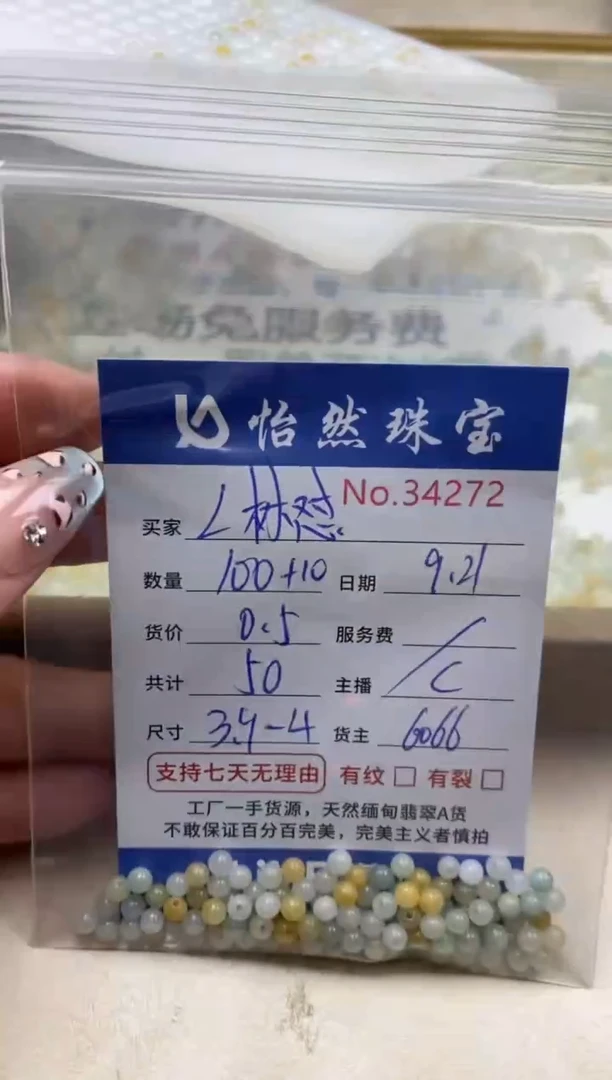 免服务费
怡然珠宝
No.34272
买家 L 林怼
数量 100+10 日期 9.21
货价 0.5 服务费 /
共计 50 主播 C
尺寸 3.9-4 货主 6066
支持七天无理由 有纹 □ 有裂 □
工厂一手货源，天然缅甸翡翠A货
不敢保证百分百完美，完美主义者慎拍